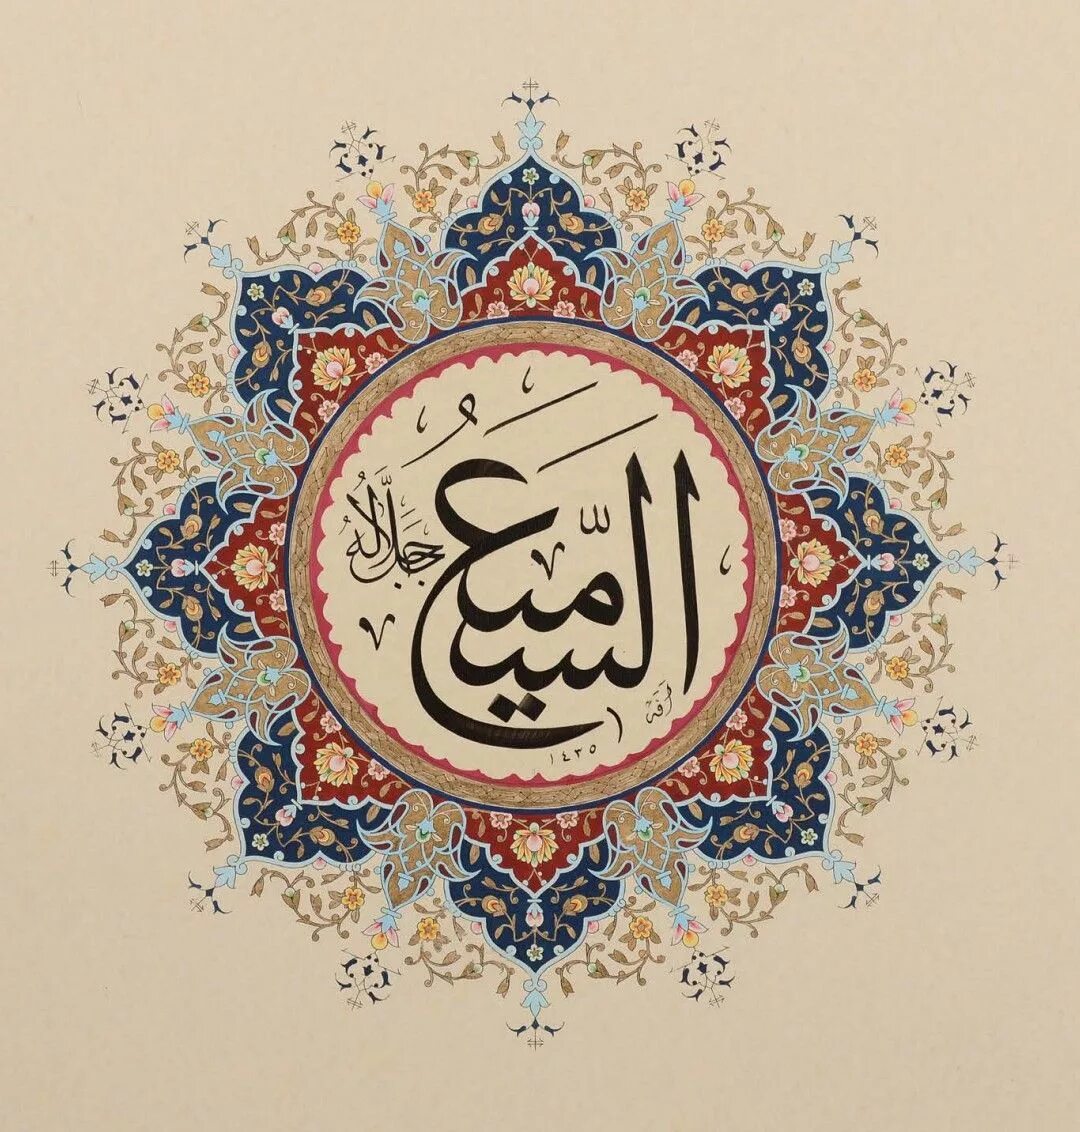 السَّمِيعُ
جَلَّ جَلَالُهُ
١٤٣٥